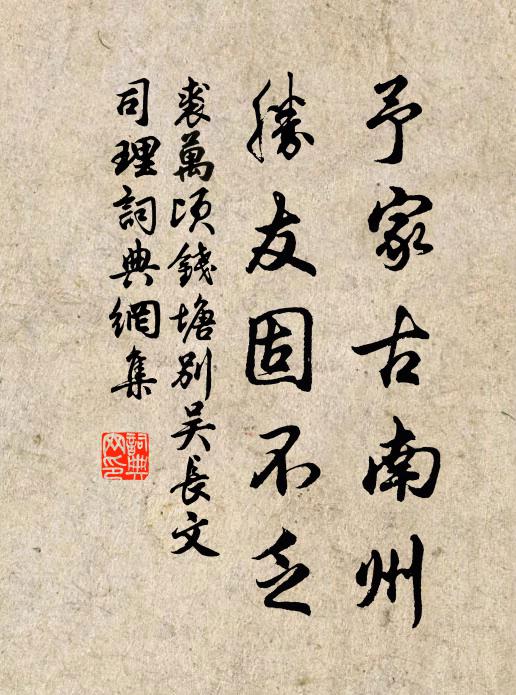 予家古南州
勝友固不乏
裘萬頃錢塘別吳長文
司理詞典網集
詞典网印